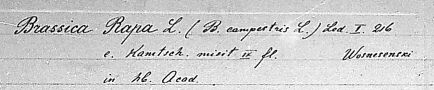 Brassica Rapa L. (B. campestris L.) Led. I. 216
e. Kamtsch. misit II fl. Wosnesenski
in hb. Acad.